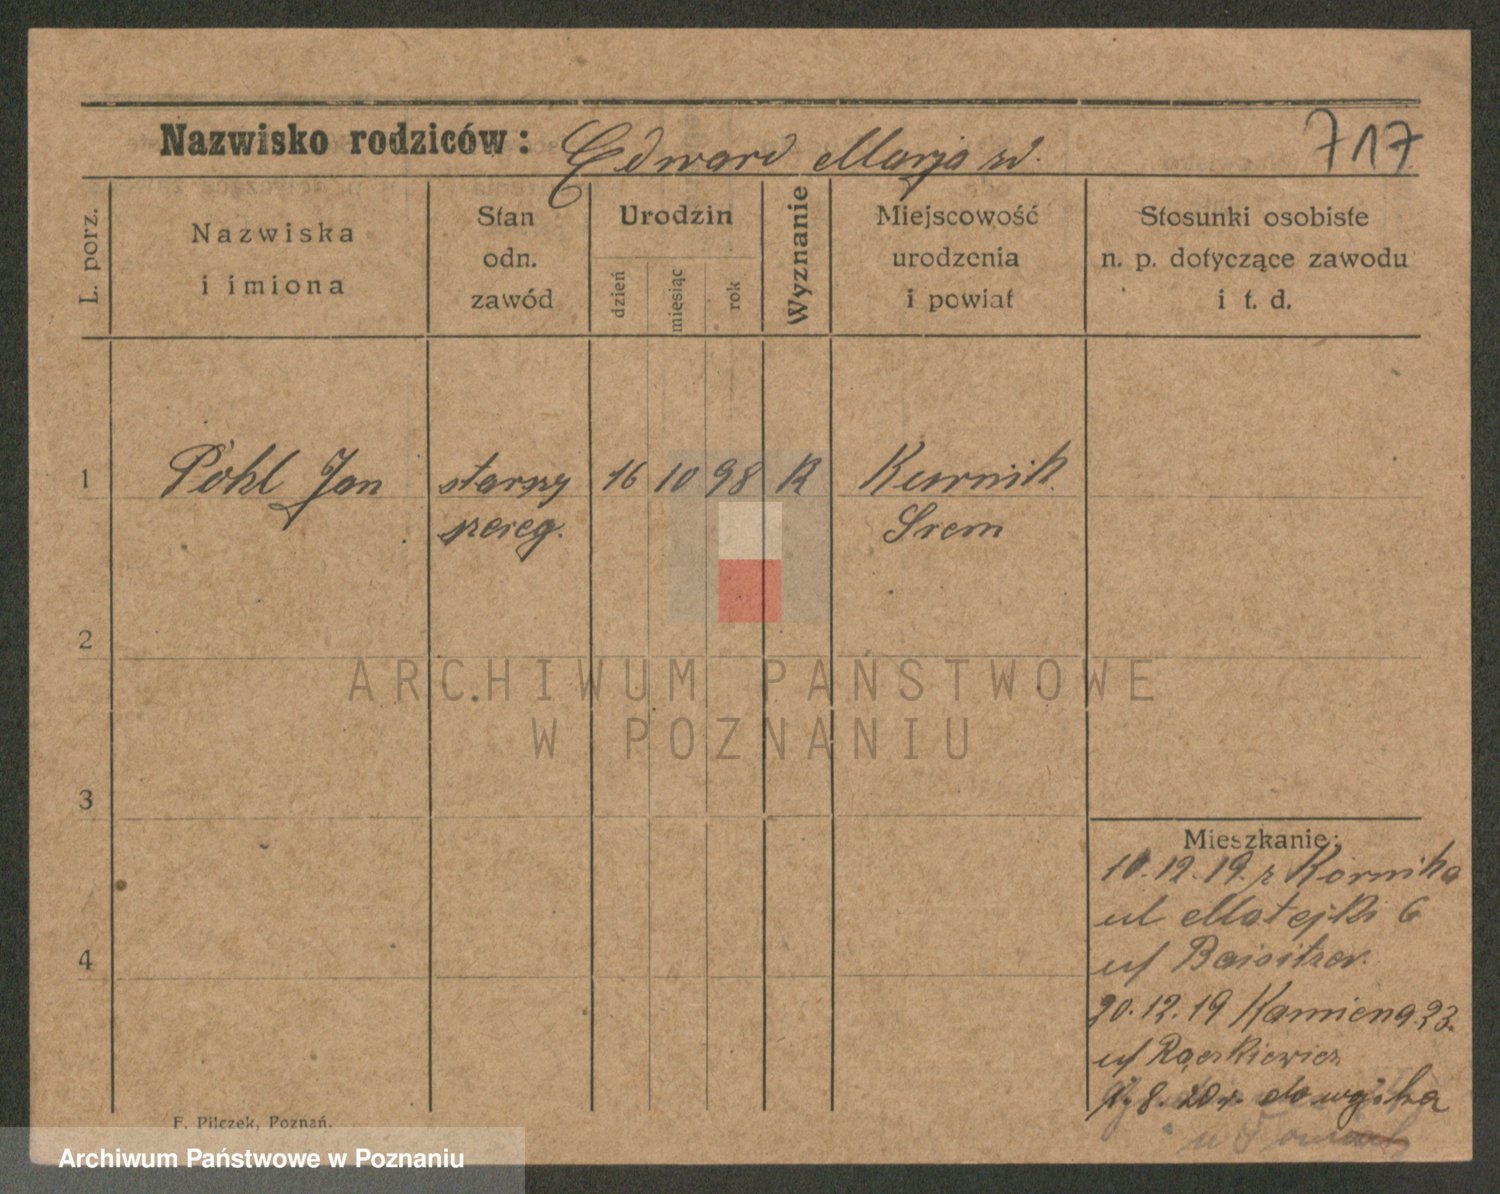 717
Nazwisko rodziców: Edward Marja zd.
L. porz.
Nazwiska
i imiona
Stan
odn.
zawód
Urodzin
dzień
miesiąc
rok
Wyznanie
Miejscowość
urodzenia
i powiat
Stosunki osobiste
n. p. dotyczące zawodu
i t. d.
1 Pohl Jan starszy 16 10 98 R Kurnik
szereg. Srem
2
3
4
Mieszkanie:
10.12.19. z Kórnika
ul Matejki 6
u/
20.12.19 Kamiena 23.
u/ Rączkiewicz
8. 20 r. do wojska
F. Pilczek, Poznań.
ARCHIWUM PAŃSTWOWE
W POZNANIU
Archiwum Państwowe w Poznaniu